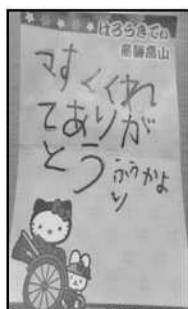 はろうきてぃ
飛騨高山
マすくくれ
てありが
とう ふうかよ
り